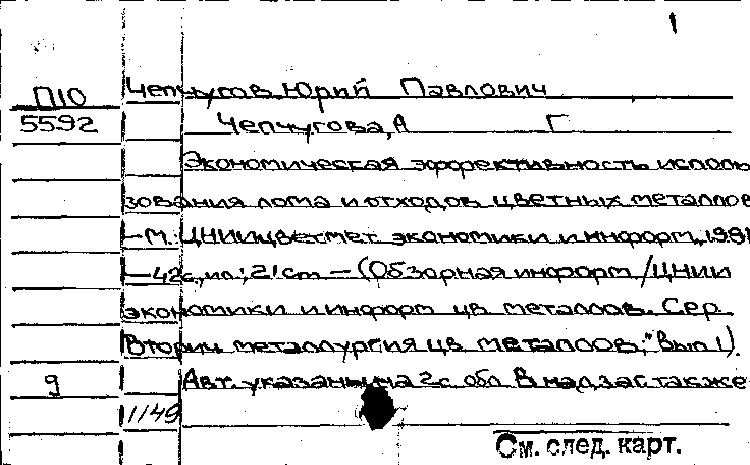 1
П10 Чепчугов Юрий Павлович
5592 Чепчугова, А Г
Экономическая эффективность исполь
зования лома и отходов цветных металлов
— М.: ЦНИИцветмет экономики и информ., 1991
— 42с., ил.; 21 cm — (Обзорная информ / ЦНИИ
экономики и информ цв металлов. Сер.
Вторич металлургия цв металлов; Вып 1).
9 Авт. указаны на 2с обл В надзаг также
1149
См. след. карт.